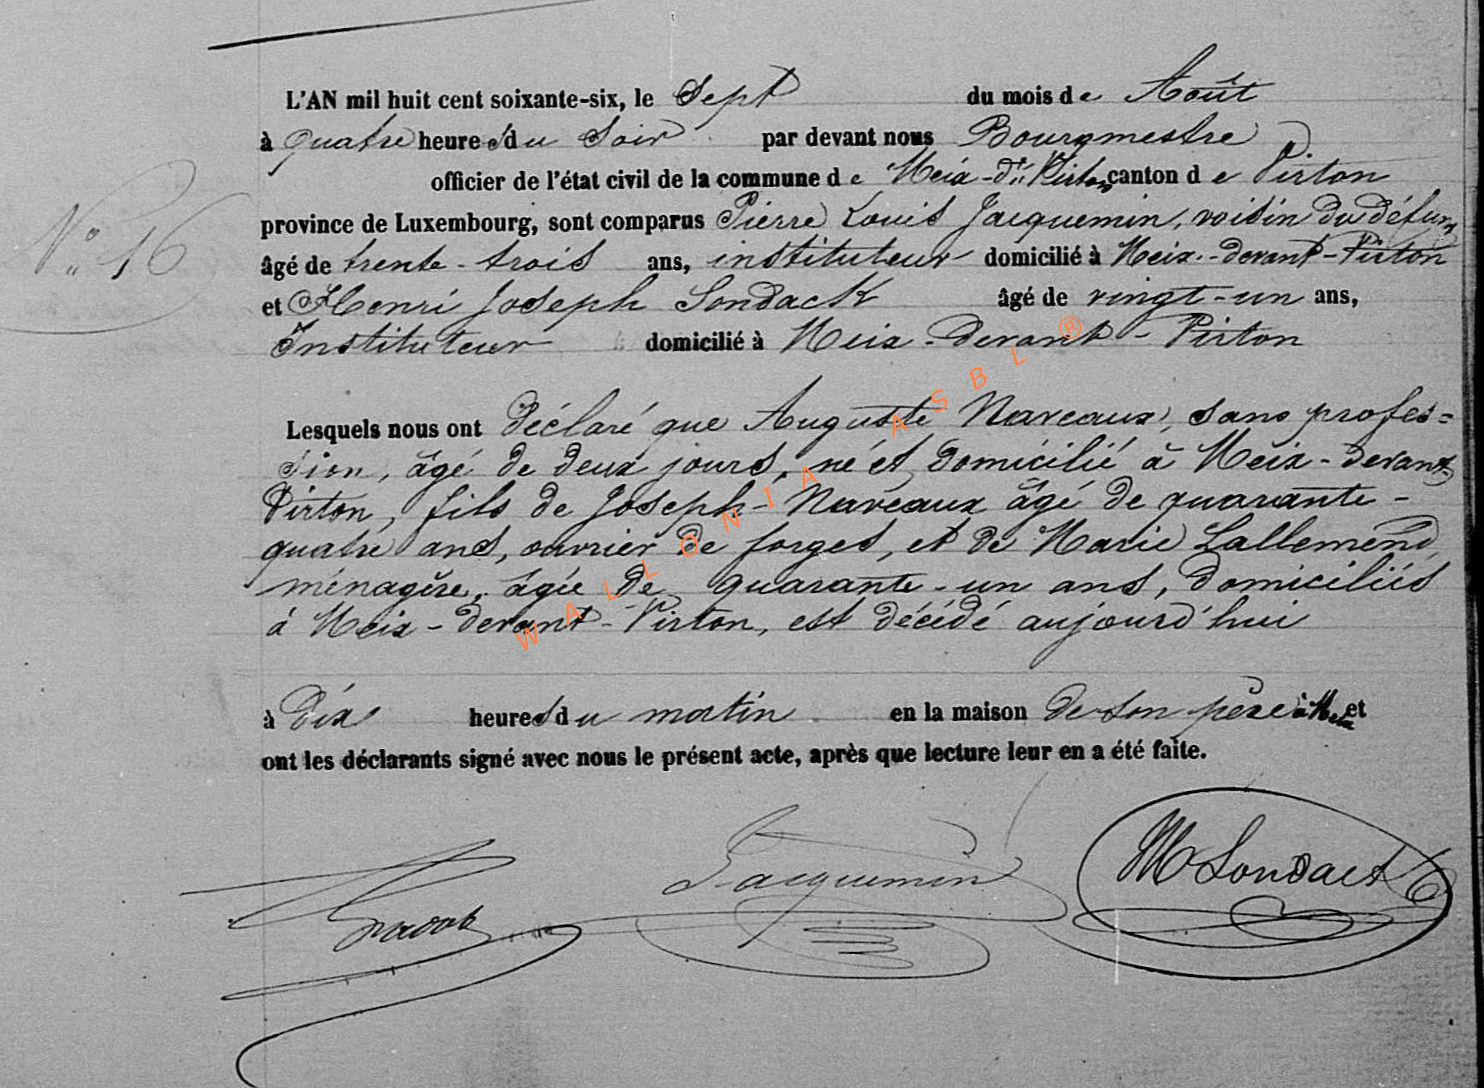 L'AN mil huit cent soixante-six, le Sept du mois de Août
à quatre heures du Soir par devant nous Bourgmestre
officier de l'état civil de la commune de Meix-dt Virton, canton de Virton
province de Luxembourg, sont comparus Pierre Louis Jacquemin, voisin du défunt
N° 16
âgé de trente-trois ans, instituteur domicilié à Meix-devant-Virton
et Henri Joseph Sondack âgé de vingt-un ans,
Instituteur domicilié à Meix-devant-Virton
Lesquels nous ont déclaré que Auguste Naveaux, sans profes=
sion, âgé de deux jours, né et domicilié à Meix-devant-
Virton, fils de Joseph Naveaux âgé de quarante-
quatre ans, ouvrier de forges, et de Marie Lallemend,
ménagère, âgée de quarante-un ans, domiciliés
à Meix-devant-Virton, est décédé aujourd'hui
à dix heures du matin en la maison de son père à Meix et
ont les déclarants signé avec nous le présent acte, après que lecture leur en a été faite.
Jacquemin
Sondack
WALLONIA ASBL ®